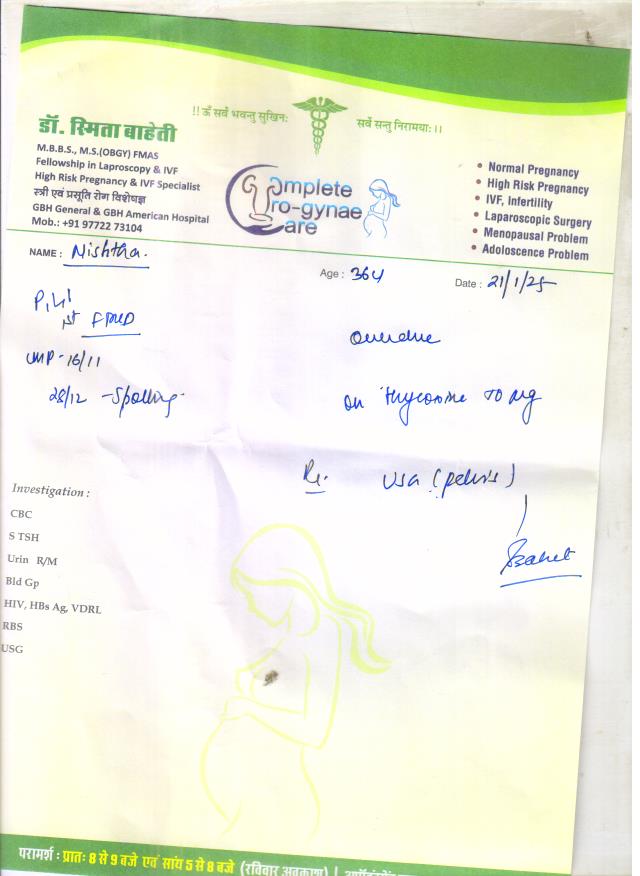 !! ॐ सर्वे भवन्तु सुखिनः सर्वे सन्तु निरामयाः ।।
डॉ. स्मिता बाहेती
M.B.B.S., M.S.(OBGY) FMAS
Fellowship in Laproscopy & IVF
High Risk Pregnancy & IVF Specialist
स्त्री एवं प्रसूति रोग विशेषज्ञ
GBH General & GBH American Hospital
Mob.: +91 97722 73104
Complete
Uro-gynae
Care
• Normal Pregnancy
• High Risk Pregnancy
• IVF, Infertility
• Laparoscopic Surgery
• Menopausal Problem
• Adoloscence Problem
NAME : Nishtha.
Age : 36y
Date : 21/1/25
P1L1
1st FTND
LMP - 16/11
28/12 - Spotting
Overdue
on Thyronorm 50 mg
Rx. USG (pelvis)
Investigation :
CBC
S TSH
Urin R/M
Bld Gp
HIV, HBs Ag, VDRL
RBS
USG
परामर्श : प्रातः 8 से 9 बजे एवं सांय 5 से 8 बजे (रविवार अवकाश) |